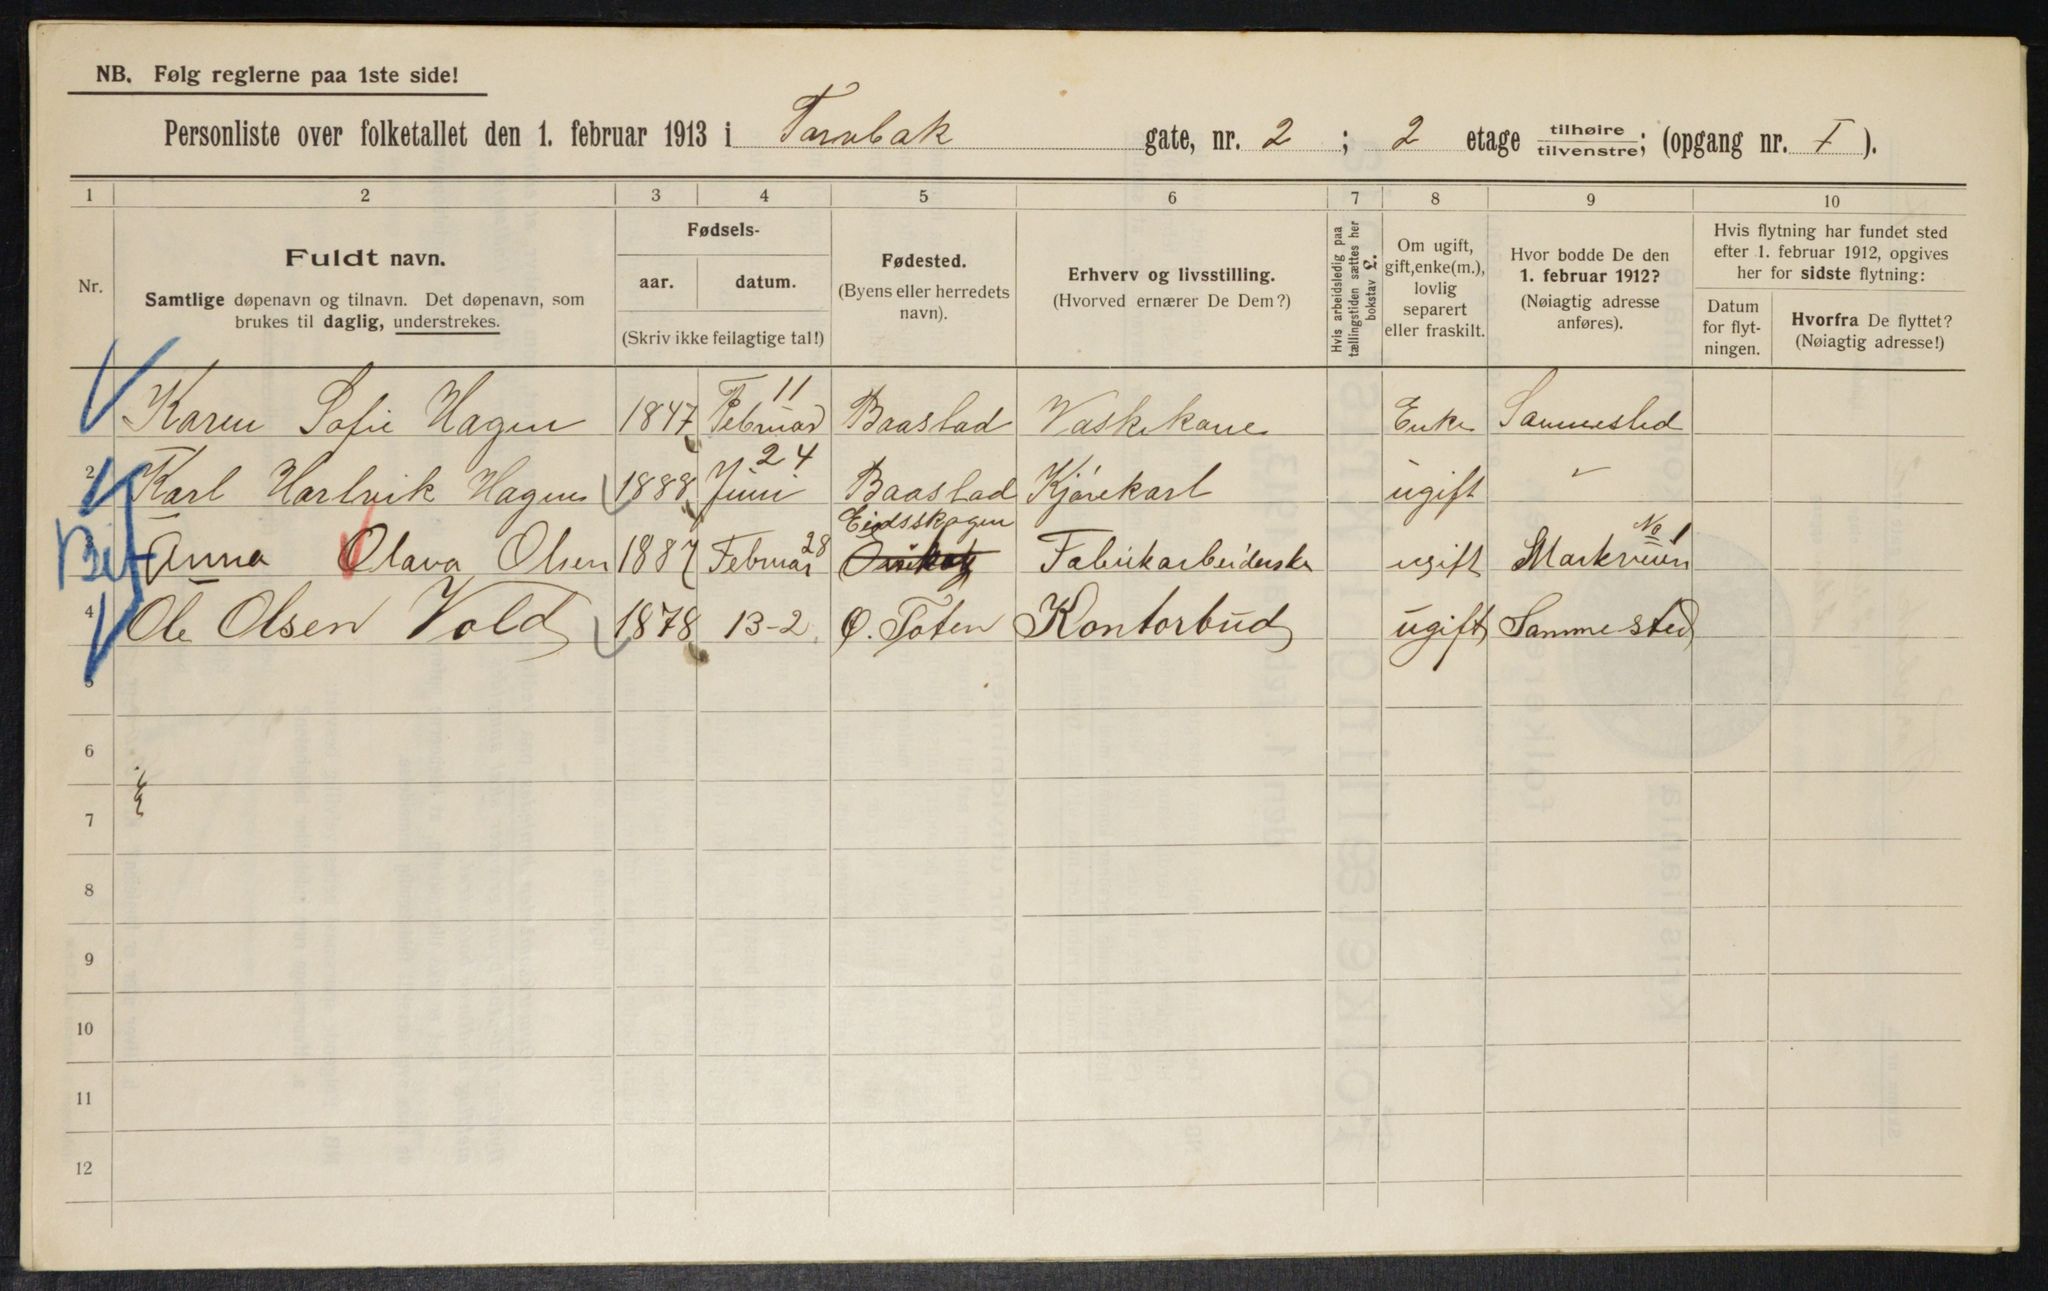 NB. Følg reglerne paa 1ste side!
Personliste over folketallet den 1. februar 1913 i Tarabak gate, nr. 2 ; 2 etage tilhøire tilvenstre; (opgang nr. I ).
1 2 3 4 5 6 7 8 9 10
Nr.
Fuldt navn.
Samtlige døpenavn og tilnavn. Det døpenavn, som
brukes til daglig, understrekes.
Fødsels-
aar. datum.
(Skriv ikke feilagtige tal!)
Fødested.
(Byens eller herredets
navn).
Erhverv og livsstilling.
(Hvorved ernærer De Dem?)
Hvis arbeidsledig paa
tællingstiden sættes her
bokstav L.
Om ugift,
gift, enke(m.),
lovlig
separert
eller fraskilt.
Hvor bodde De den
1. februar 1912?
(Nøiagtig adresse
anføres).
Hvis flytning har fundet sted
efter 1. februar 1912, opgives
her for sidste flytning:
Datum
for flyt-
ningen.
Hvorfra De flyttet?
(Nøiagtig adresse!)
Karen Sofie Hagen 1847 Februar 11 Baastad Vaskekone Enke Sammested
2 Karl Hartvik Hagen 1888 Juni 24 Baastad Kjørekarl ugift "
Bif
3 Anna Olava Olsen 1887 Februar 28 Eidsskogen Fabrikarbeiderske ugift Markveien No 1
4 Ole Olsen Vold 1878 13-2 Ø. Toten Kontorbud ugift Sammested
5
6
7
8
9
10
11
12